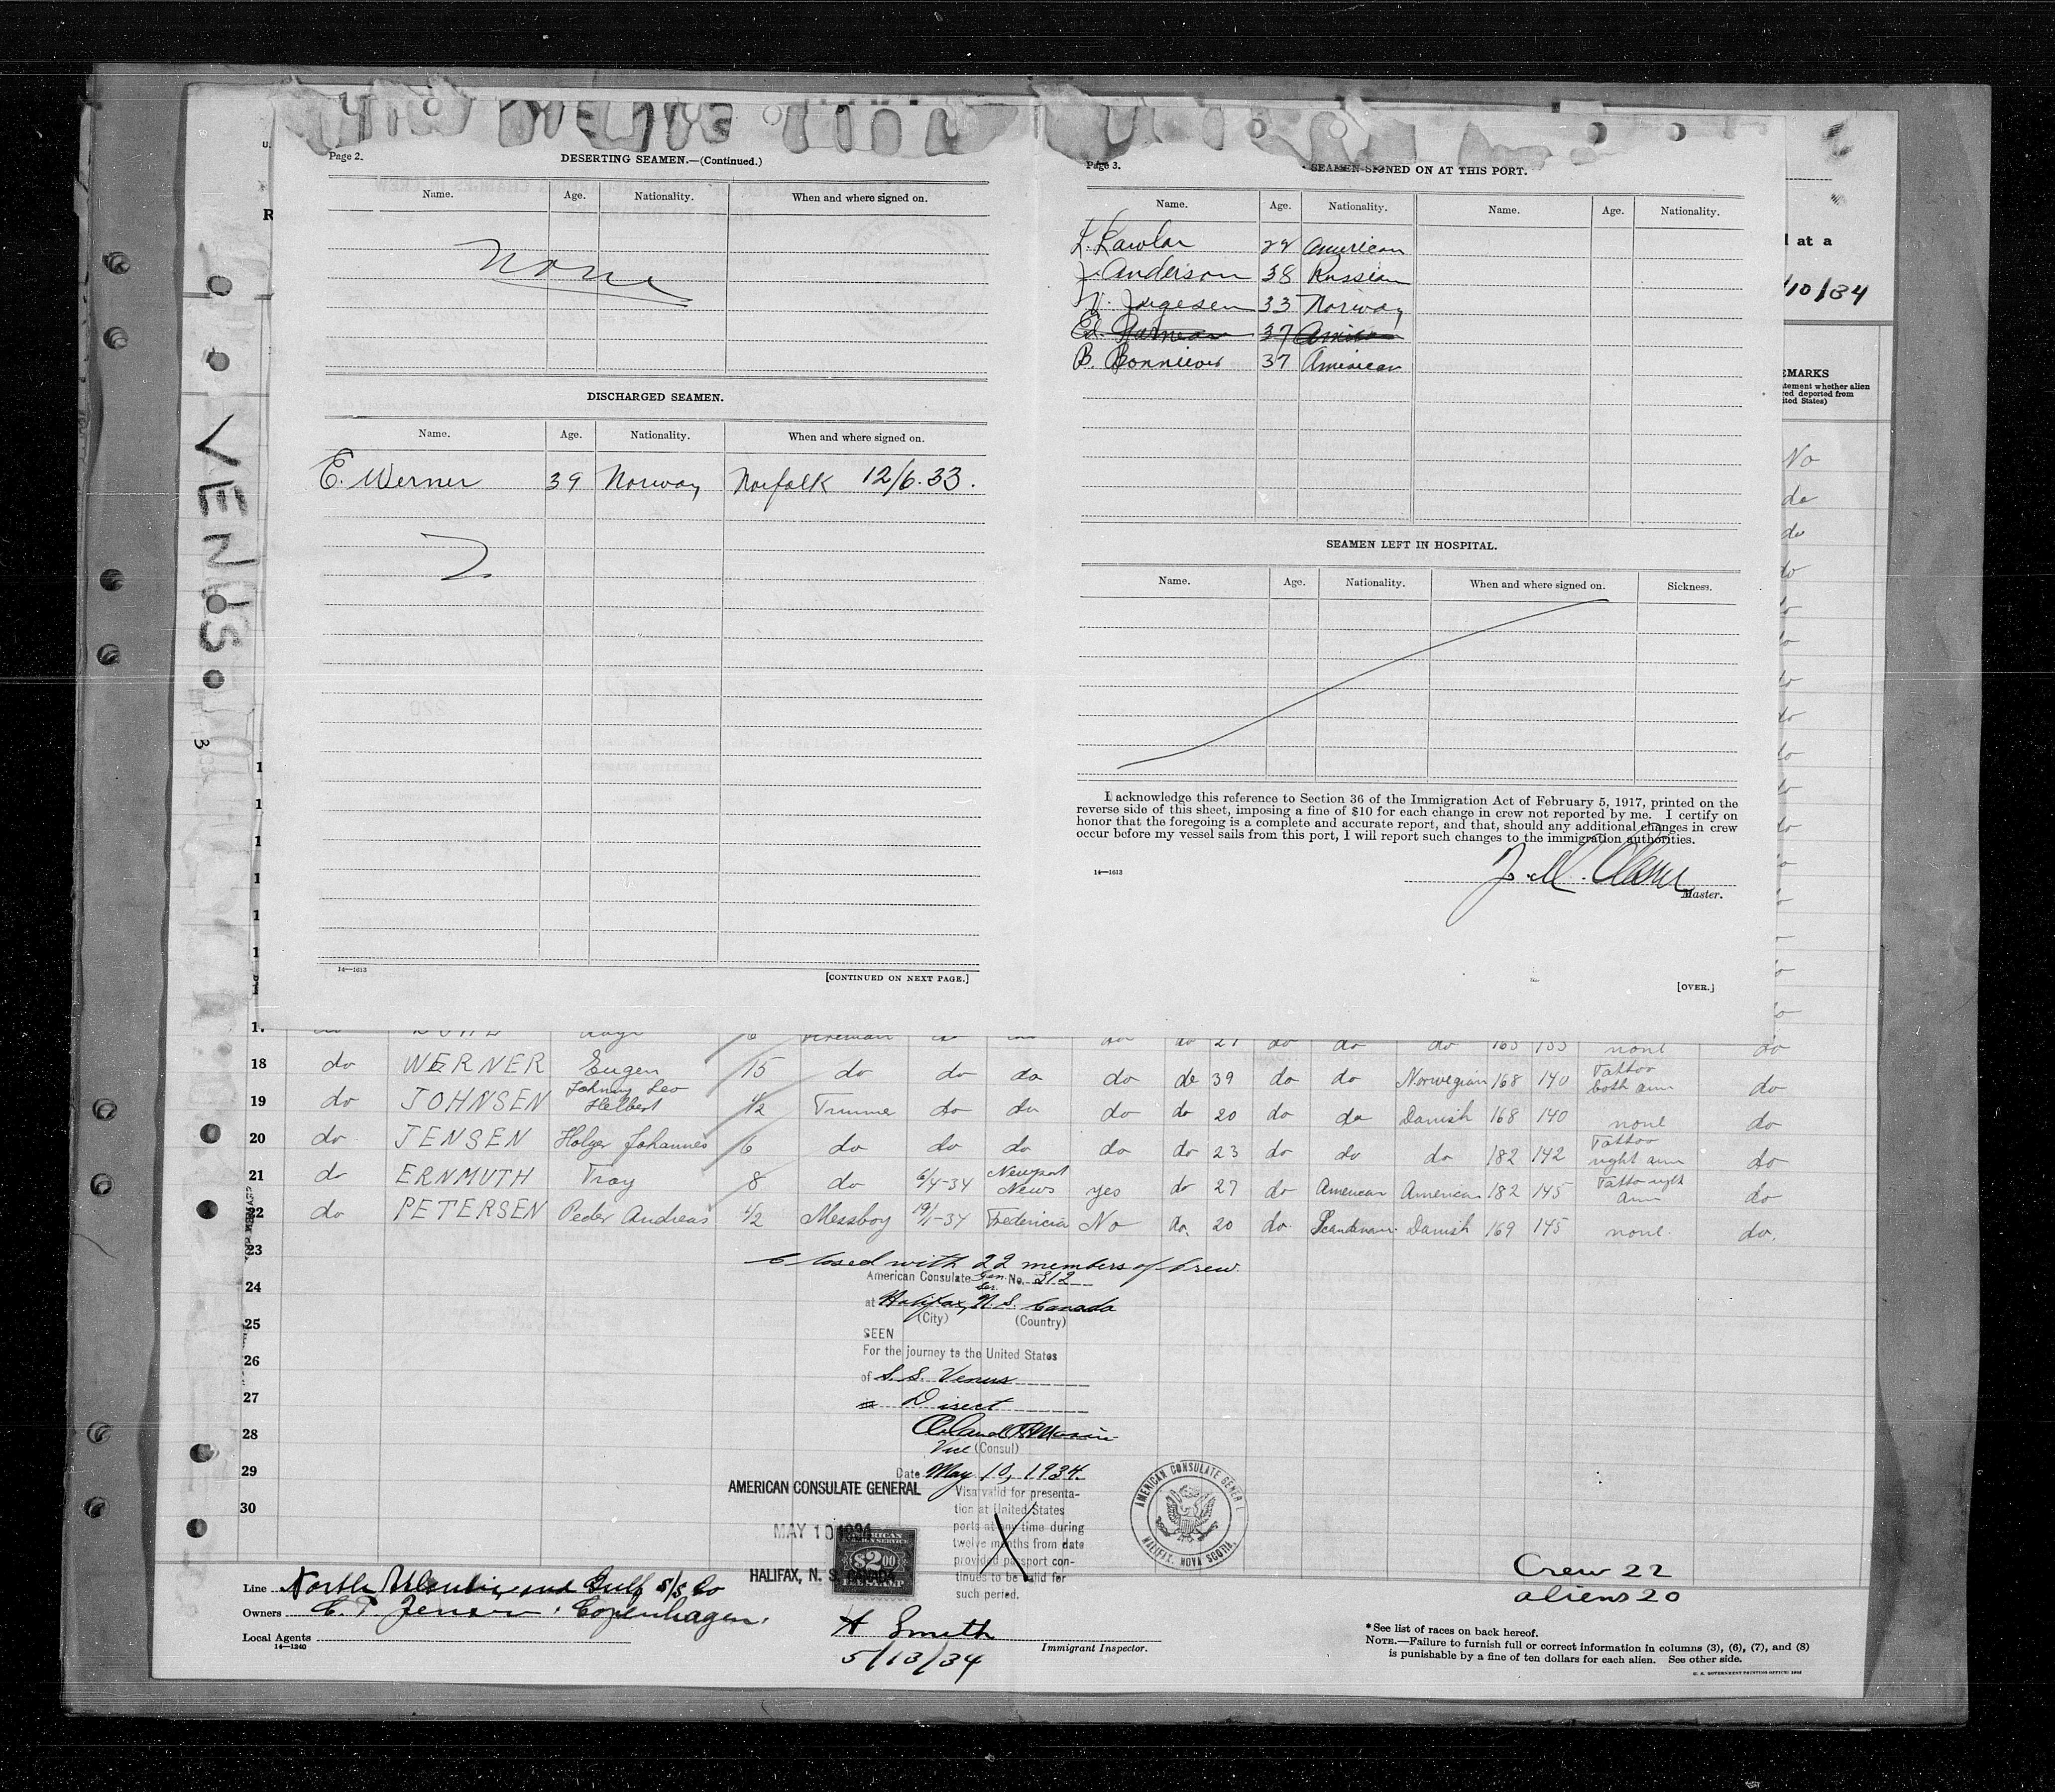 Page 2.
DESERTING SEAMEN.—(Continued.)
Name. Age. Nationality. When and where signed on.
None
DISCHARGED SEAMEN.
Name. Age. Nationality. When and where signed on.
E. Werner 39 Norway Norfolk 12/6.33.
14—1613
[CONTINUED ON NEXT PAGE.]
Page 3.
SEAMEN SIGNED ON AT THIS PORT.
Name. Age. Nationality. Name. Age. Nationality.
L. Lawlor 22 American
J. Anderson 38 Russian
Jorgesen 33 Norway
Ed. 37
B. 37 American
SEAMEN LEFT IN HOSPITAL.
Name. Age. Nationality. When and where signed on. Sickness.
I acknowledge this reference to Section 36 of the Immigration Act of February 5, 1917, printed on the
reverse side of this sheet, imposing a fine of $10 for each change in crew not reported by me. I certify on
honor that the foregoing is a complete and accurate report, and that, should any additional changes in crew
occur before my vessel sails from this port, I will report such changes to the immigration authorities.
14—1613
Master.
[OVER.]
l at a
/10/34
EMARKS
tement whether alien
red deported from
ited States)
No
do
do
do
VENUS
3
165 155 none do
18 do WERNER Eugen 15 do do do do do 39 do do Norwegian 168 140 Tattoo both arm do
19 do JOHNSEN Johnny Leo Helbert 1/2 Trimmer do do do do 20 do do Danish 168 140 none do
20 do JENSEN Holger Johannes 6 do do do do do 23 do do do 182 142 Tattoo right arm do
21 do ERNMUTH Troy 8 do 6/4-34 Newport News yes do 27 do American American 182 145 Tatto right arm do
22 do PETERSEN Peder Andreas 1/2 Messboy 19/1-34 Fredericia No do. 20 do. Scandinavi. Danish 169 145 none. do.
23
Closed with 22 members of crew.
24
American Consulate Gen. Ser. No. 312
at Halifax, N.S. Canada
(City) (Country)
25
SEEN
For the journey to the United States
26
of S.S. Venus
27
Direct
28
Vice (Consul)
29
Date May 10, 1934.
30
AMERICAN CONSULATE GENERAL
MAY 10 1934
HALIFAX, N. S. CANADA
$2.00
Visa valid for presenta-
tion at United States
ports at any time during
twelve months from date
provided passport con-
tinues to be valid for
such period.
AMERICAN CONSULATE GENERAL
HALIFAX, NOVA SCOTIA.
Crew 22
aliens 20
Line North Atlantic and Gulf S/S Co
Owners C. T. Jensen, Copenhagen.
Local Agents
14—1240
A Smith Immigrant Inspector.
5/13/34
*See list of races on back hereof.
NOTE.—Failure to furnish full or correct information in columns (3), (6), (7), and (8)
is punishable by a fine of ten dollars for each alien. See other side.
U. S. GOVERNMENT PRINTING OFFICE: